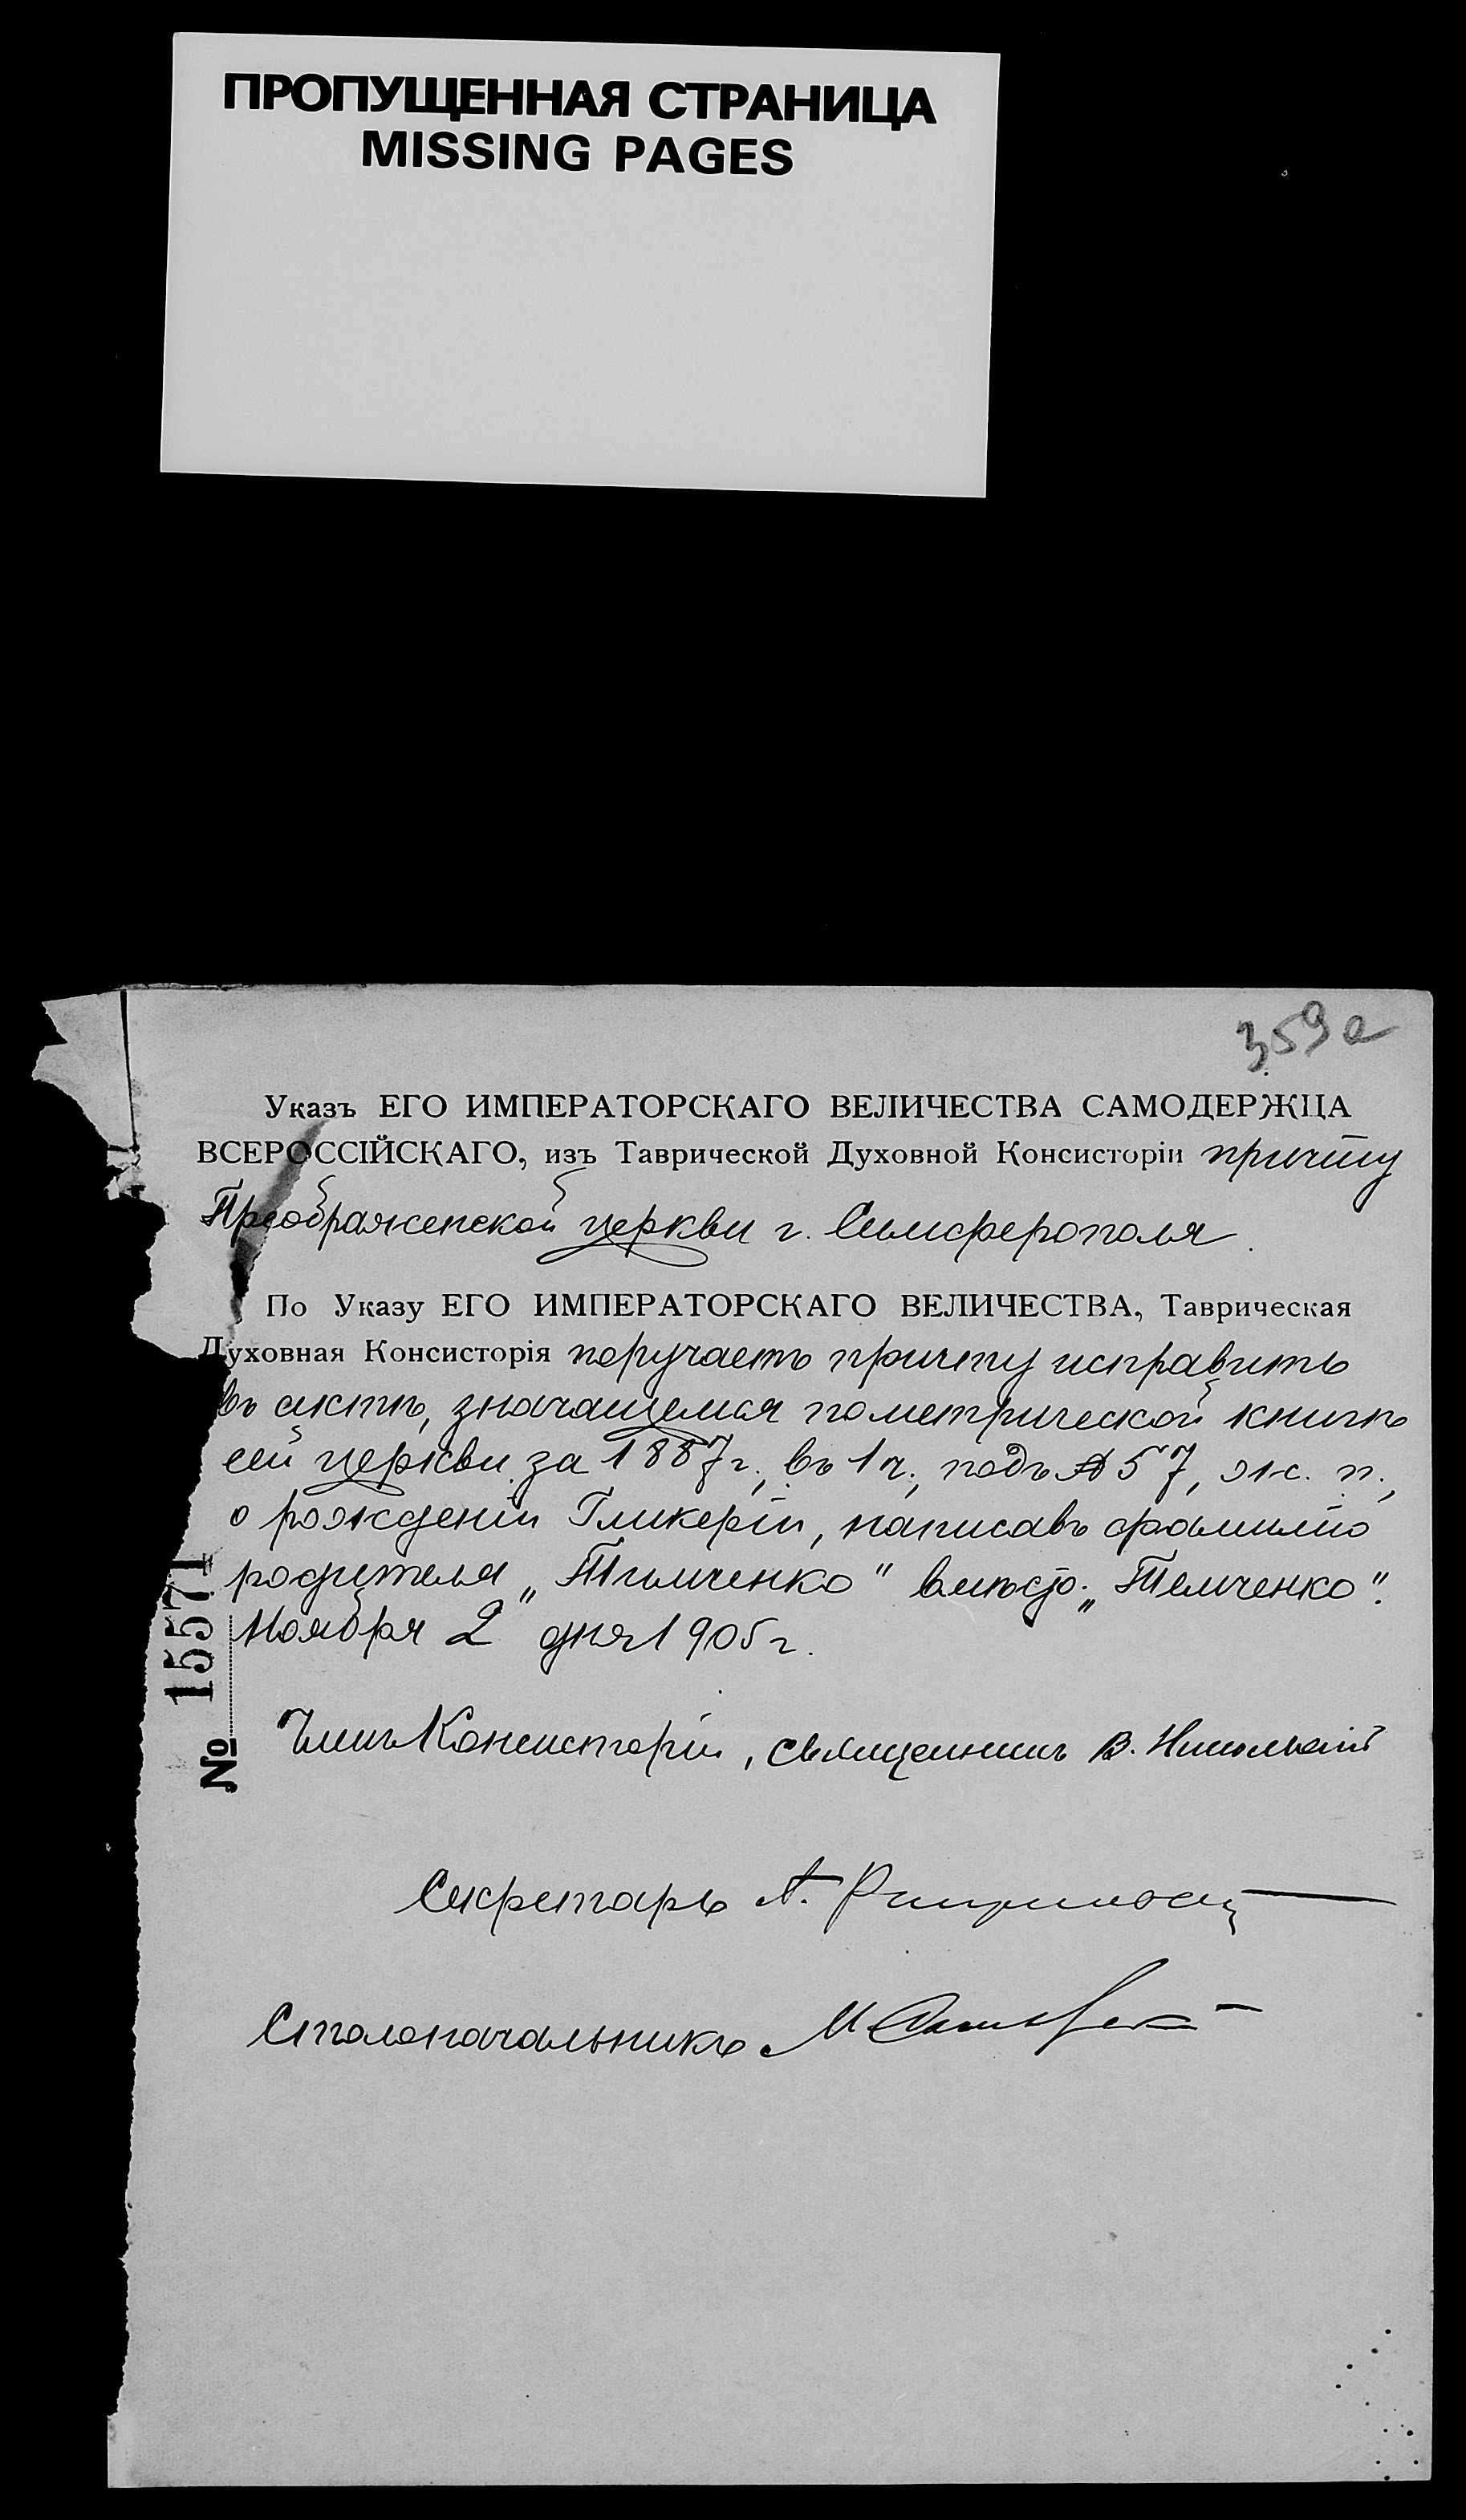 ПРОПУЩЕННАЯ СТРАНИЦА
MISSING PAGES
359а
Указъ ЕГО ИМПЕРАТОРСКАГО ВЕЛИЧЕСТВА САМОДЕРЖЦА
ВСЕРОССІЙСКАГО, изъ Таврической Духовной Консисторіи причту
Преображенской церкви г. Симферополя.
По Указу ЕГО ИМПЕРАТОРСКАГО ВЕЛИЧЕСТВА, Таврическая
Духовная Консисторія поручаетъ причту исправить
въ актѣ, значащемся по метрической книгѣ
сей церкви за 1887 г., въ 1 ч., подъ № 57, ж. п.,
о рожденіи Гликеріи, написавъ фамилію
родителя „Тимченко" вмѣсто „Темченко".
Ноября 2 дня 1905 г.
№ 15571
Членъ Консисторіи, священникъ В. Никольскій
Секретарь А.
Столоначальникъ М